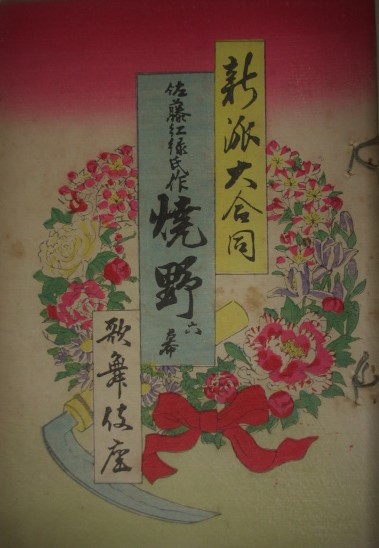 新派大合同
佐藤紅緑氏作
焼野 六幕
歌舞伎座